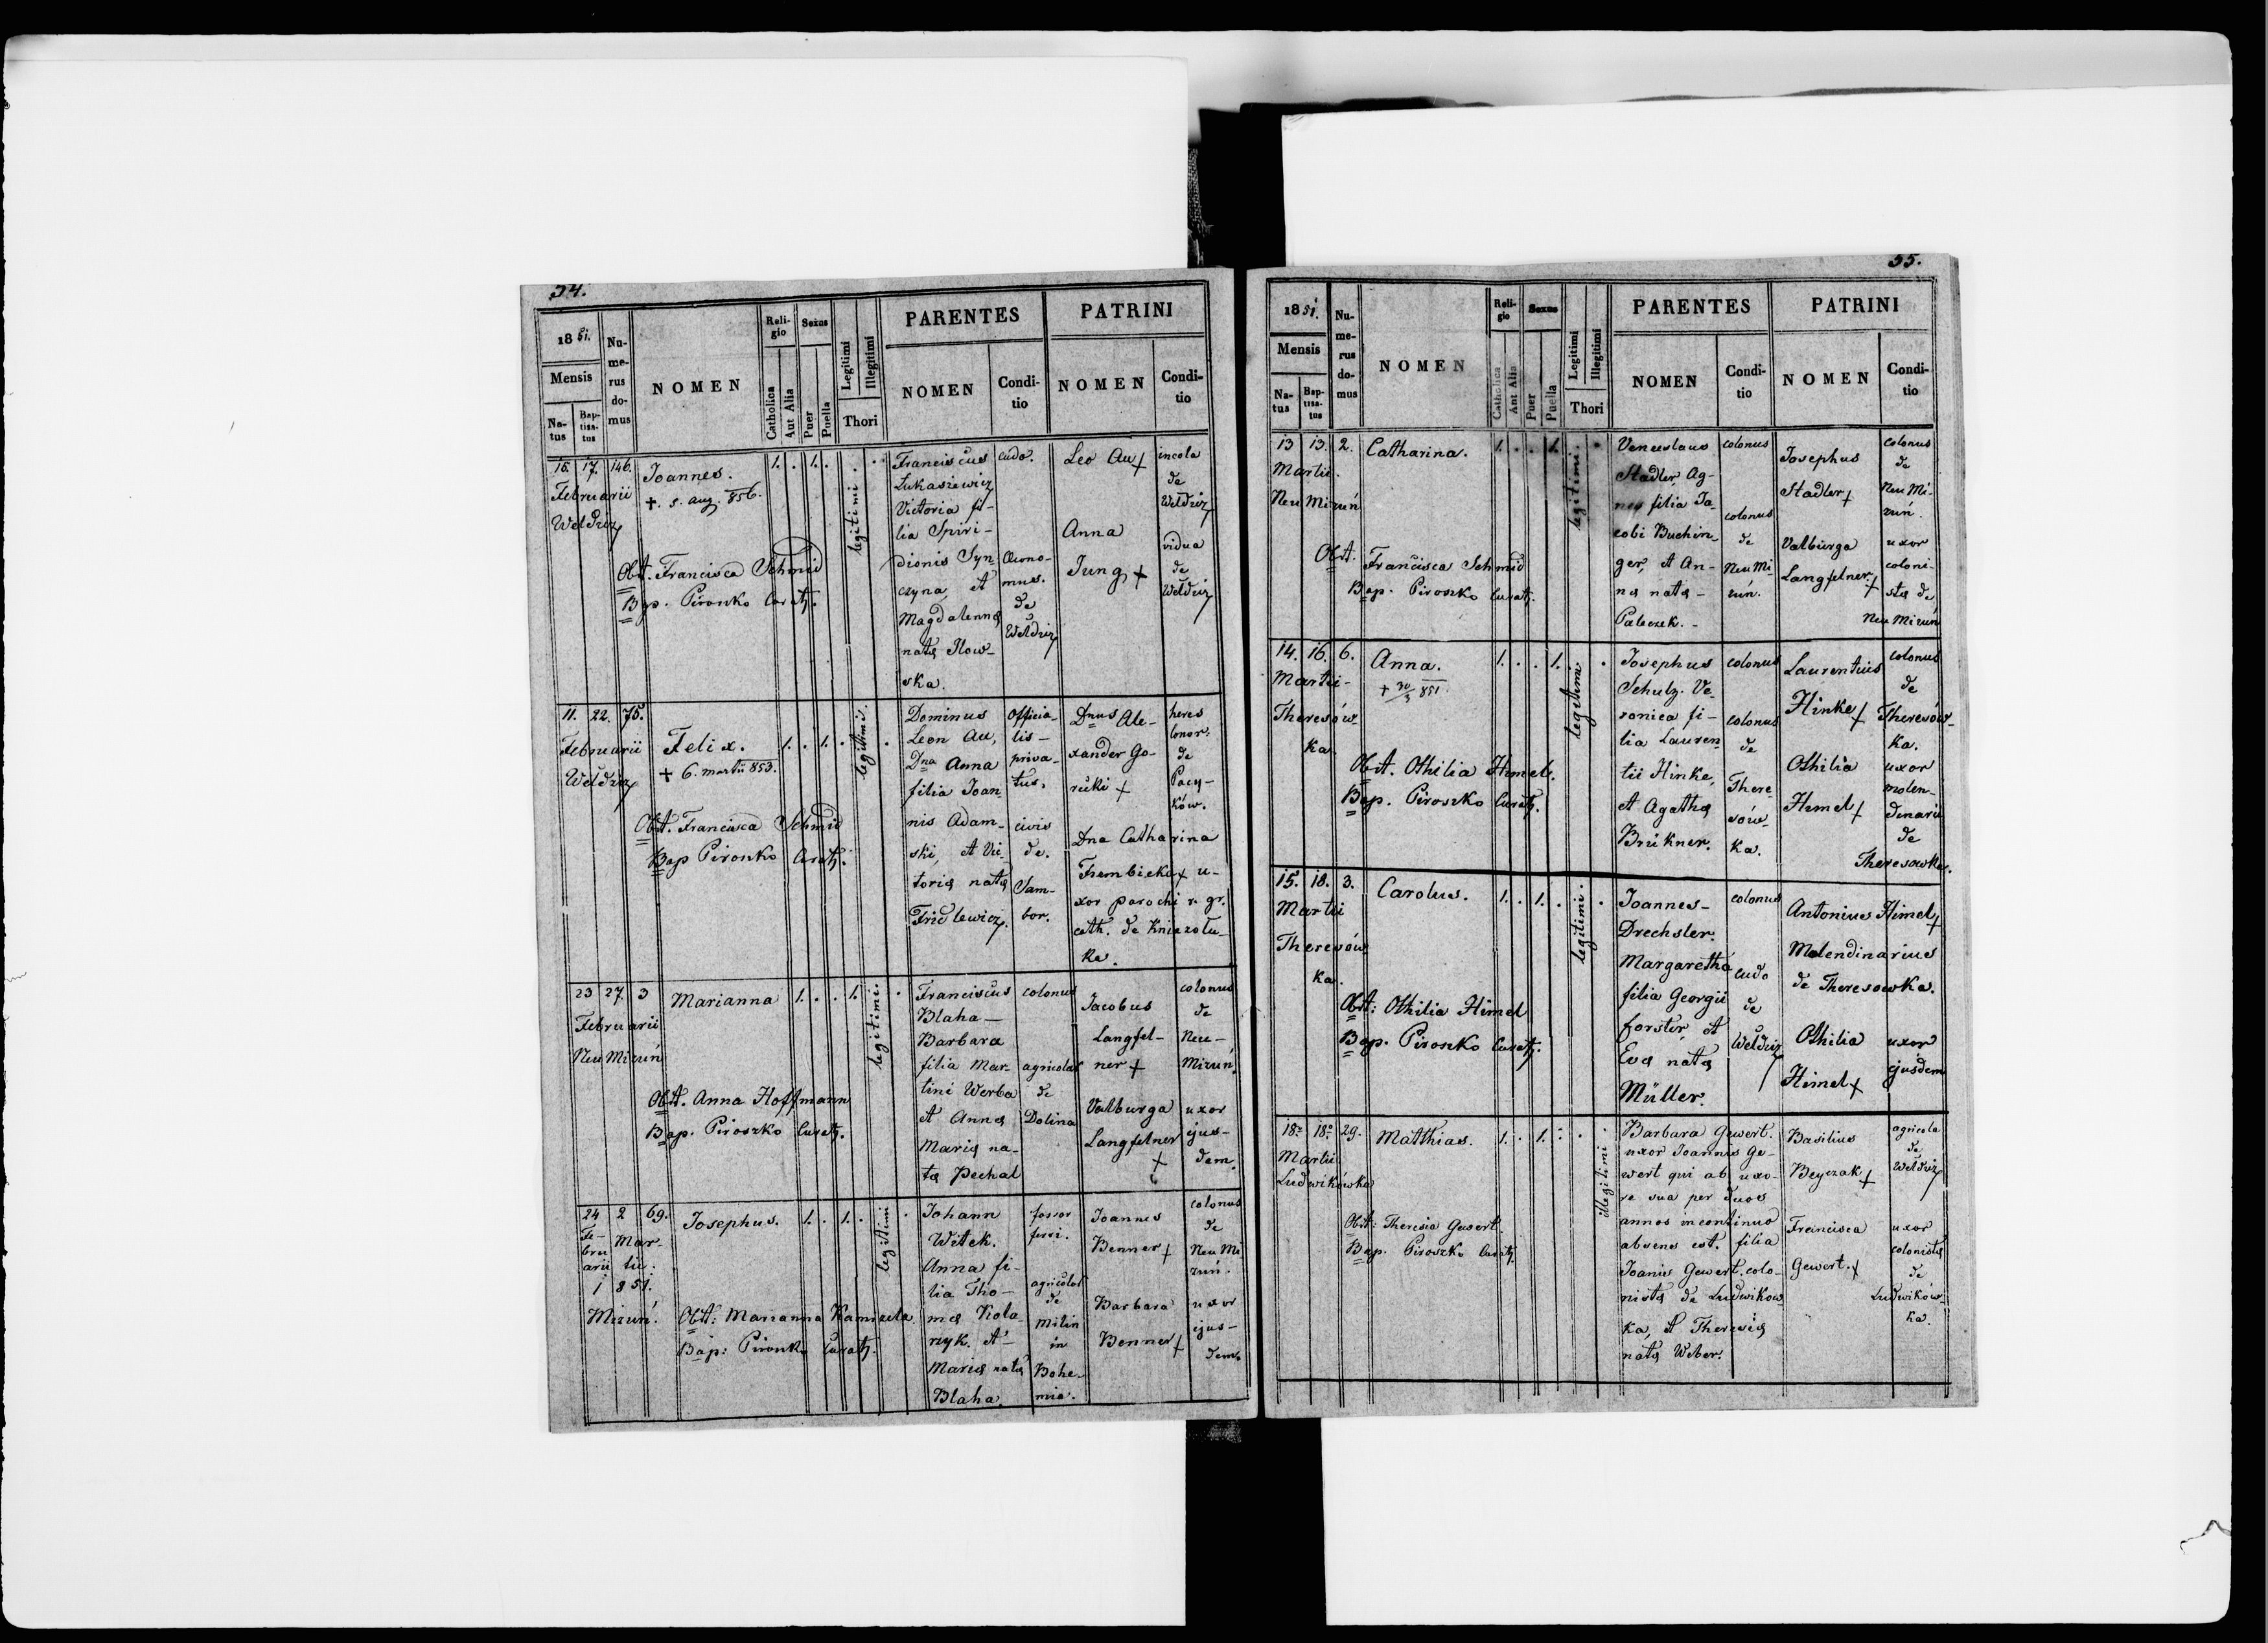 54.
1851.
Mensis
Na-
tus
Bap-
tisa-
tus
Nu-
me-
rus
do-
mus
NOMEN
Reli-
gio
Catholica
Aut Alia
Sexus
Puer
Puella
Legitimi
Illegitimi
Thori
PARENTES
NOMEN
Condi-
tio
PATRINI
NOMEN
Condi-
tio
15. 17. 146.
Februarii
Weldziz
Joannes.
+. 5. aug. 856.
Obst. Francisca Schmid
Bap. Piroszko Curatg.
1. . 1. .
legitimi.
Franciscus
Łukasiewicz
Victoria fi-
lia Spiri-
dionis Syn-
czyna, et
Magdalenna
nata Ilow-
ska.
cudo.
Oecono-
mus.
de
Weldziz
Leo Au +
Anna
Jung +
incola
de
Weldziz
vidua
de
Weldziz
11. 22. 75.
Februarii
Weldziz
Felix.
+ 6. martii 853.
Obst. Francisca Schmid
Bap Piroszko Curatg.
1. . 1. .
legitimi.
Dominus
Leon Au,
Dna Anna
filia Joan-
nis Adam-
ski, et Vic-
toria nata
Fridlewicz.
Officia-
lis-
priva-
tus,
civis
de.
Sam-
bor.
Dnus Ale-
xander Go-
rucki +
Dna Catharina
Trembicka + u-
xor parochi r. gr.
cath. de Kniazolu-
ka.
heres
bonor.
de
Pacy-
ków.
23 27. 3
Februarii
Neu Mizuń
Marianna
Obst. Anna Hoffmann
Bap. Piroszko Curatg.
1. . . 1.
legitimi.
Franciscus
Blaha-
Barbara
filia Mar-
tini Werba
et Anna
Maria na-
ta Pechal
colonus
agricolae
de
Dolina
Jacobus
Langfel-
ner +
Valburga
Langfelner
+
colonus
de
Neu-
Mizuń.
uxor
ejus-
dem.
24 2 69.
Fe-
bru
arii
Mar-
tii.
1851.
Mizuń.
Josephus.
Obst: Marianna Kamizela
Bap: Piroszko Curatg.
1. . 1. .
legitimi
Johann
Witek.
Anna fi-
lia Tho-
mas Kola-
rzyk. et
Maria nata
Blaha.
fossor
ferri.
agricolae
de
Milin
in
Bohe-
mia.
Joannes
Benner +
Barbara
Benner +
colonus
de
Neu Mi
zuń.
uxor
ejus-
dem.
55.
1851.
Mensis
Na-
tus
Bap-
tisa-
tus
Nu-
me-
rus
do-
mus
NOMEN
Reli-
gio
Catholica
Aut Alia
Sexus
Puer
Puella
Legitimi
Illegitimi
Thori
PARENTES
NOMEN
Condi-
tio
PATRINI
NOMEN
Condi-
tio
13 13. 2.
Martii.
Neu Mizuń
Catharina.
Obst. Francisca Schmid
Bap. Piroszko Curatg.
1. . . 1.
legitimi.
Venceslaus
Stadler, Ag-
nes filia Ja-
cobi Buchin-
ger, et An-
na nata-
Paleczek.-
colonus
colonus
de
Neu Mi-
zuń.
Josephus
Stadler +
Valburga
Langfelner. +
colonus
de
Neu Mi-
zuń.
uxor
coloni-
sta de
Neu Mizuń
14. 16. 6.
Martii-
Theresów
ka
Anna.
+ 30/3 851.
Obst. Othilia Himel.
Bap. Piroszko Curatg.
1. . . 1.
legitimi
Josephus
Schulz. Ve-
ronica fi-
lia Lauren-
tii Hinke,
et Agatha
Brükner.
colonus
colonus
de
There-
sów-
ka.
Laurentius
Hinke +
Othilia
Himel +
colonus
de
Theresów-
ka.
uxor
molen-
dinarii
de
Theresowka.
15. 18. 3.
Martii
Theresów
ka.
Carolus.
Obst: Othilia Himel
Bap. Piroszko Curatg.
1. . 1. .
legitimi.
Joannes-
Drechsler.
Margaretha
filia Georgii
Forster, et
Eva nata
Müller.
colonus
cudo
de
Weldziz
Antonius Himel +
Molendinarius
de Theresowka.
Othilia
Himel +
uxor
ejusdem
18. 18. 29.
Martii
Ludwikówka
Matthias.
Obst: Theresia Gewert.
Bap. Piroszko Curatg.
1. . 1. .
illegitimi.
Barbara Gewert.
uxor Joannis Ge-
wert qui ab uxo-
re sua per duos
annos incontinuo
absens est. filia
Joanis Gewert, colo-
nista de Ludwikow-
ka, et Theresia
nata Weber.
Basilius
Beyczak +
Francisca
Gewert. +
agricola
de
Weldziz
uxor
colonista
de
Ludwików-
ka.